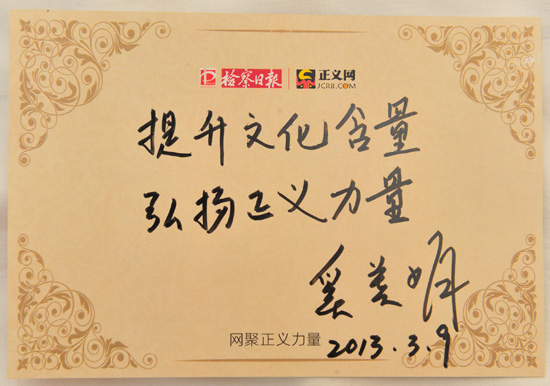 检察日报 正义网
JCRB.COM
提升文化含量
弘扬正义力量
奚美娟
网聚正义力量
2013.3.9